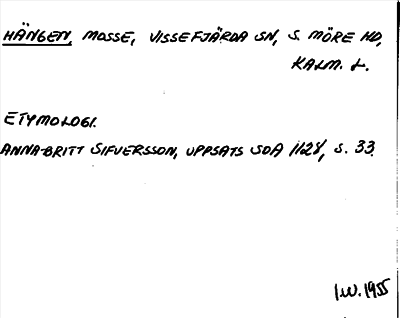 HÄNGEN, MOSSE, VISSEFJÄRDA SN, S. MÖRE HD,
KALM. L.
ETYMOLOGI.
ANNA-BRITT SIFVERSSON, UPPSATS SOA 1128, S. 33.
I.W. 1955